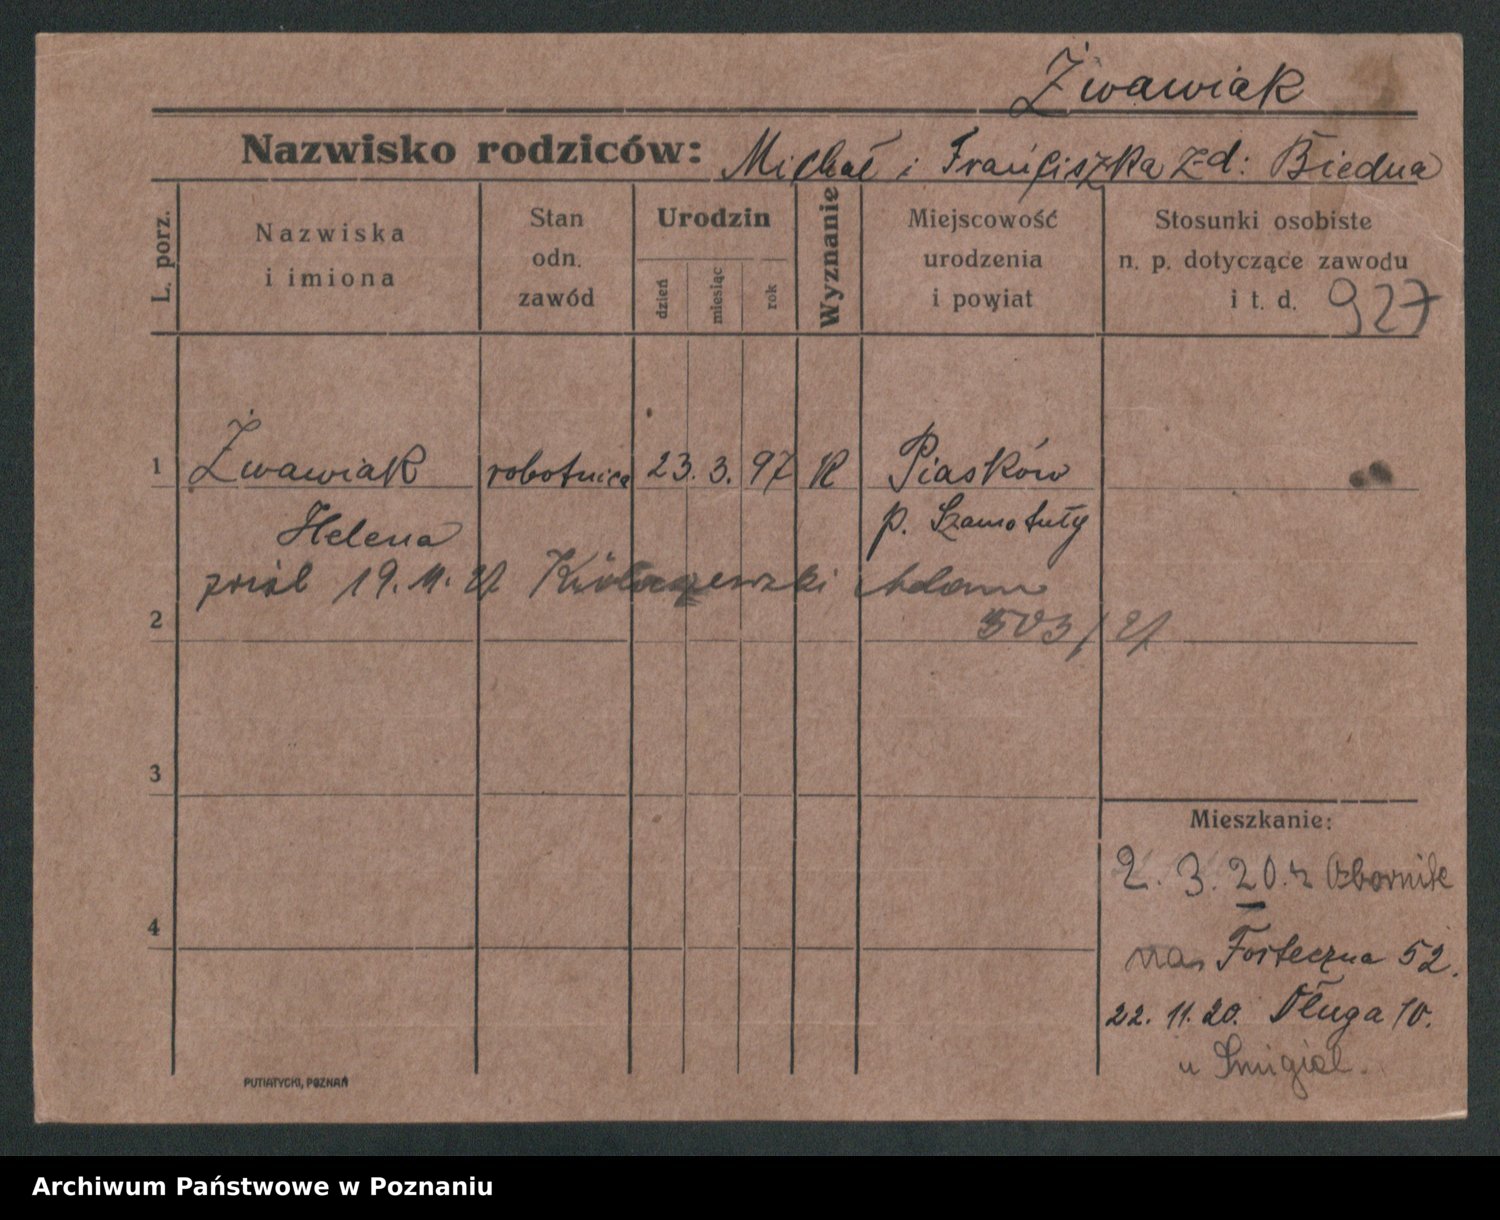 Żwawiak
Nazwisko rodziców: Michał i Franciszka z d: Biedna
L. porz.
Nazwiska
i imiona
Stan
odn.
zawód
Urodzin
dzień
miesiąc
rok
Wyznanie
Miejscowość
urodzenia
i powiat
Stosunki osobiste
n. p. dotyczące zawodu
i t. d. 927
1 Żwawiak robotnica 23. 3. 97 K Piasków
Helena p. Szamotuły
19. 11. 21 Adam
2 503/21
3
Mieszkanie:
2. 3. 20. z Obornik
4
na Forteczna 52.
22. 11. 20. Długa 10.
u Śmigiel.
PUTIATYCKI, POZNAŃ
Archiwum Państwowe w Poznaniu